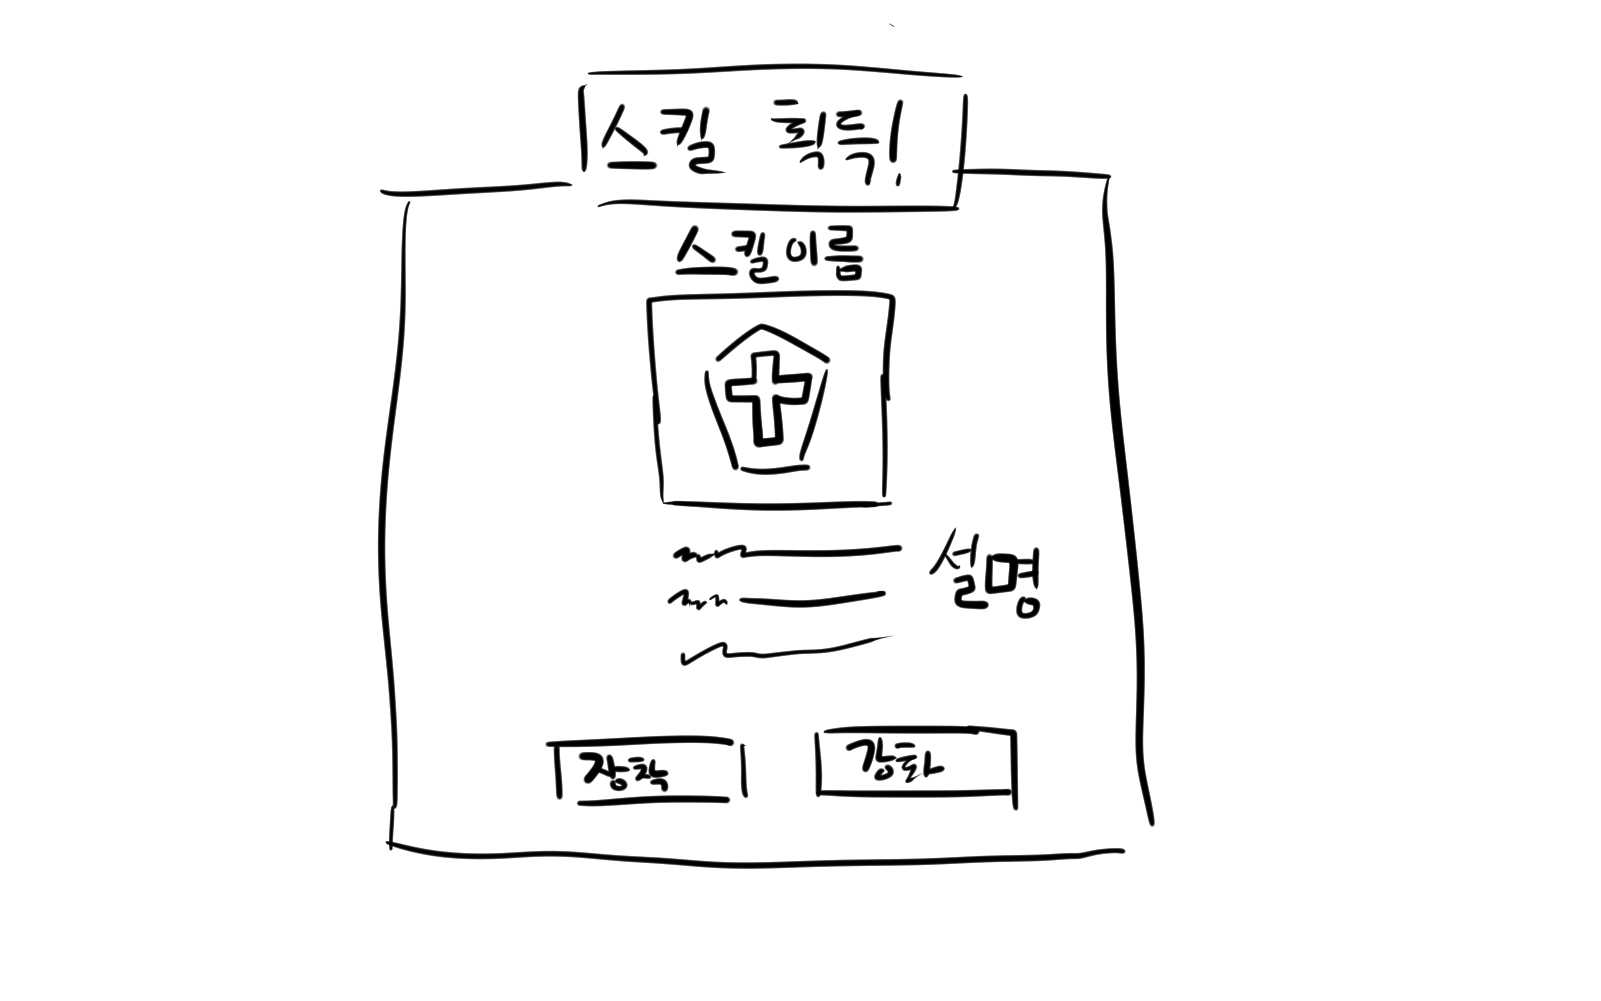 스킬 획득!
스킬이름
설명
장착
강화